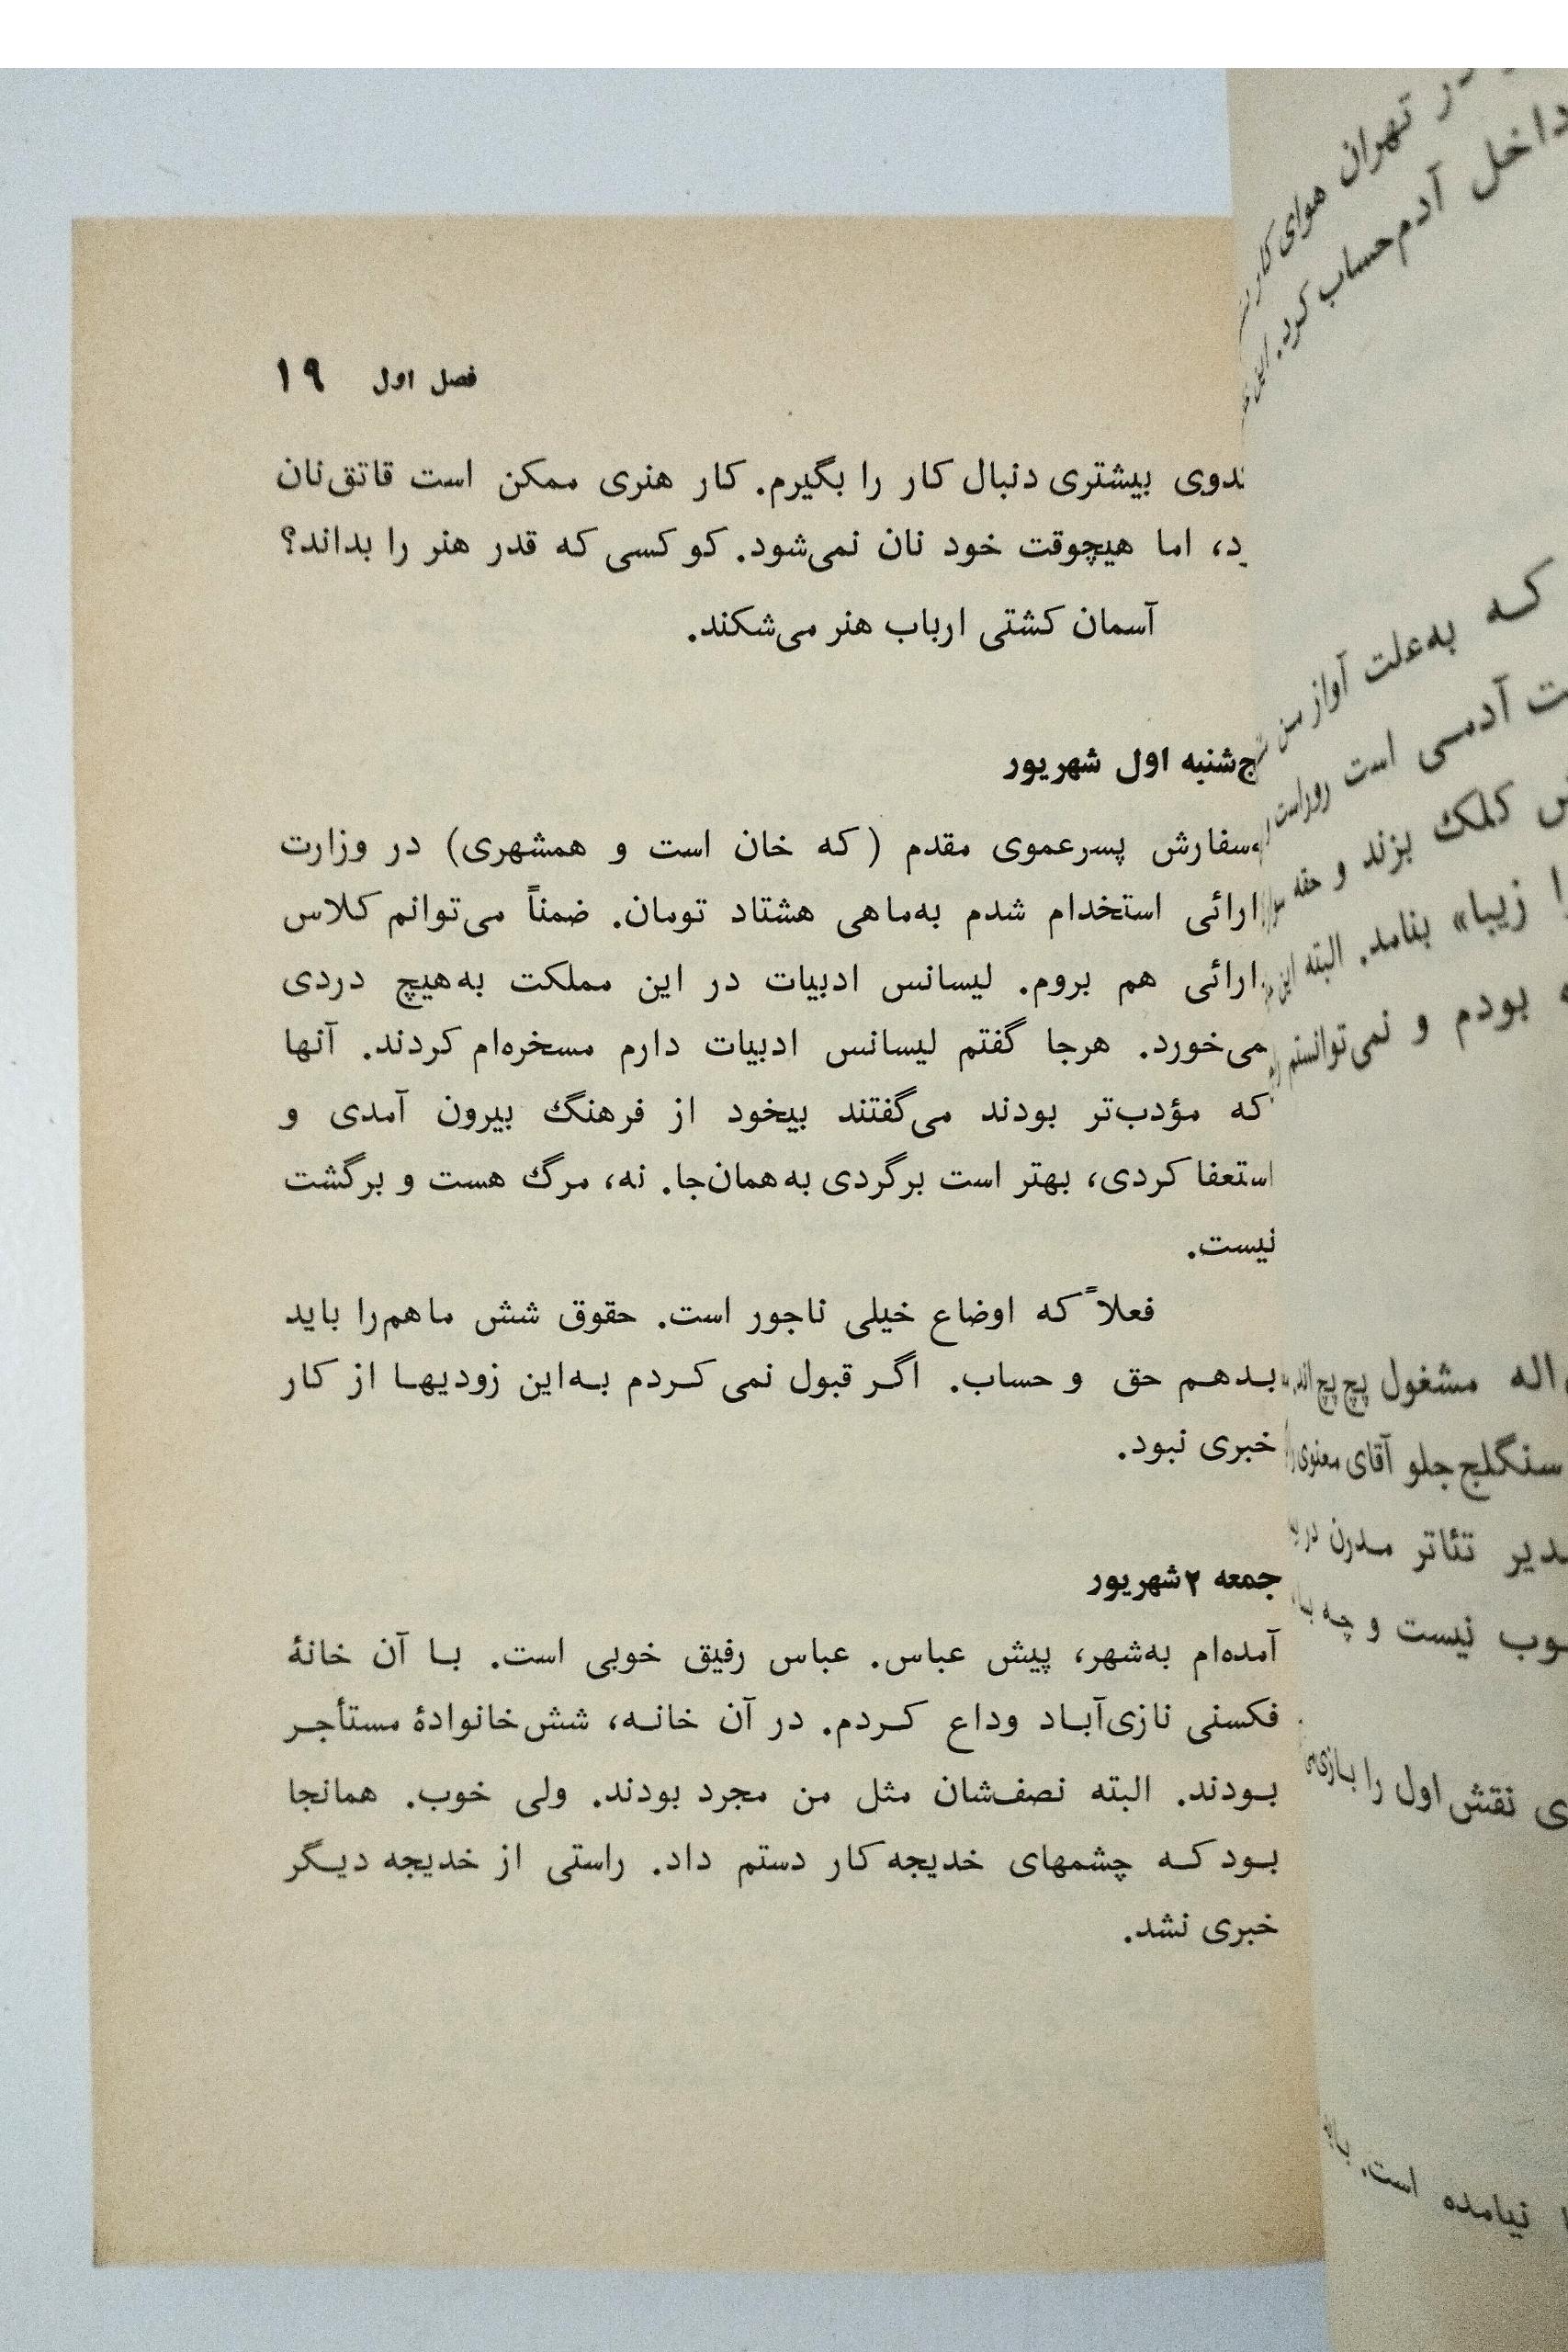 فصل اول ۱۹
بیشتری دنبال کار را بگیرم. کار هنری ممکن است قاتق‌نان
اما هیچوقت خود نان نمی‌شود. کو کسی که قدر هنر را بداند؟
آسمان کشتی ارباب هنر می‌شکند.
اول شهریور
پسرعموی مقدم (که خان است و همشهری) در وزارت
استخدام شدم به‌ماهی هشتاد تومان. ضمناً می‌توانم کلاس
هم بروم. لیسانس ادبیات در این مملکت به‌هیچ دردی
می‌خورد. هرجا گفتم لیسانس ادبیات دارم مسخره‌ام کردند. آنها
که مؤدب‌تر بودند می‌گفتند بیخود از فرهنگ بیرون آمدی و
استعفا کردی، بهتر است برگردی به‌همان‌جا. نه، مرگ هست و برگشت
نیست.
فعلاً که اوضاع خیلی ناجور است. حقوق شش ماهم‌را باید
بدهم حق و حساب. اگر قبول نمی‌کردم به‌این زودیها از کار
خبری نبود.
جمعه ۲ شهریور
آمده‌ام به‌شهر، پیش عباس. عباس رفیق خوبی است. با آن خانهٔ
فکسنی نازی‌آباد وداع کردم. در آن خانه، شش‌خانوادهٔ مستأجر
بودند. البته نصف‌شان مثل من مجرد بودند. ولی خوب. همانجا
بود که چشمهای خدیجه کار دستم داد. راستی از خدیجه دیگر
خبری نشد.
تهران هوای
داخل آدم‌حساب کرد.
که به‌علت آواز
آدمی است
کلک بزند و حقه
زیبا» بنامد. البته این
بودم و نمی‌توانستم
مشغول پچ‌پچ‌اند
سنگلج جلو آقای معنوی
تئاتر مدرن
نیست و چه
نقش اول را
نیامده است.